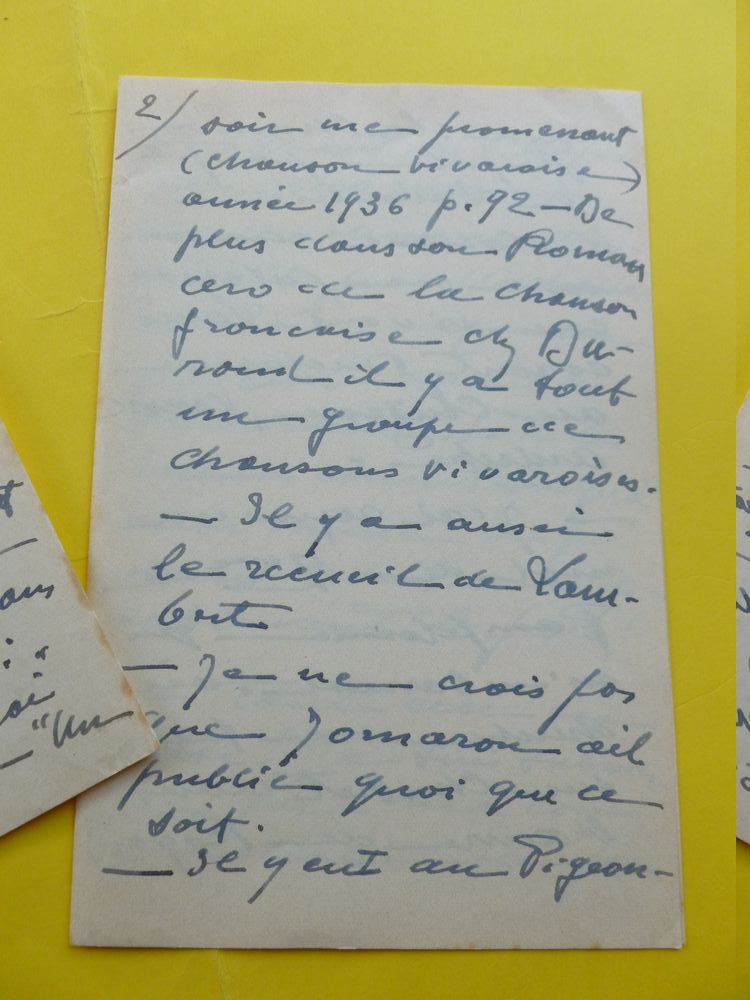 2/ soir me promenant
(chanson vivaroise)
année 1936 p. 92 — De
plus dans son Roman
cero de la chanson
française chz Du-
rand il y a tout
un groupe de
chansons vivaroises.
— Il y a aussi
le recueil de Lam-
bert.
— Je ne crois pas
que Jomaron ait
publié quoi que ce
soit.
— Il y eut au Pigeon-
ans
"Un